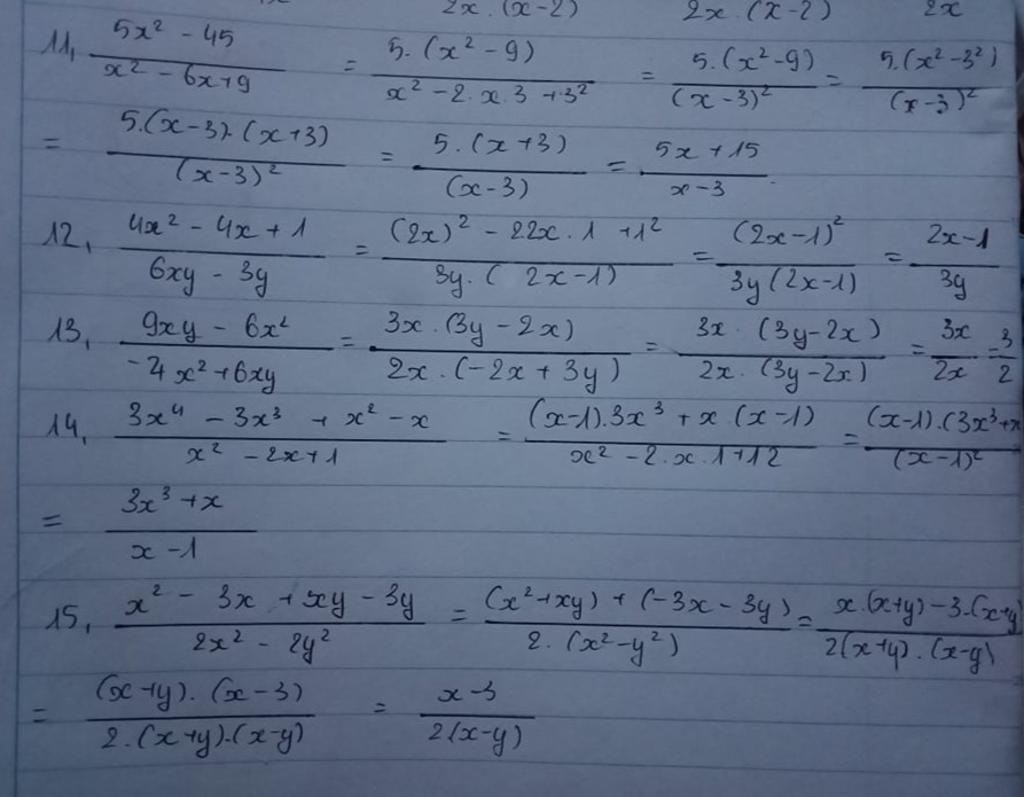 2x.(x-2) 2x.(x-2) 2x
11, (5x² - 45)/(x² - 6x+9) = (5.(x² - 9))/(x² - 2.x.3 + 3²) = (5.(x²-9))/((x-3)²) = (5.(x²-3²))/((x-3)²)
= (5.(x-3).(x+3))/((x-3)²) = (5.(x+3))/((x-3)) = (5x+15)/(x-3)
12, (4x² - 4x + 1)/(6xy - 3y) = ((2x)² - 22x.1 + 1²)/(3y.(2x-1)) = ((2x-1)²)/(3y(2x-1)) = (2x-1)/(3y)
13, (9xy - 6x²)/(-4x²+6xy) = (3x.(3y-2x))/(2x.(-2x+3y)) = (3x.(3y-2x))/(2x.(3y-2x)) = 3x/2x = 3/2
14, (3x⁴ - 3x³ + x² - x)/(x² - 2x+1) = ((x-1).3x³ + x(x-1))/(x² - 2.x.1+12) = ((x-1).(3x³+x)/((x-1)²)
= (3x³+x)/(x-1)
15, (x² - 3x + xy - 3y)/(2x² - 2y²) = ((x²+xy) + (-3x-3y))/(2.(x²-y²)) = (x.(x+y)-3.(x+y)/(2(x+y).(x-y))
= ((x+y).(x-3))/(2.(x+y).(x-y)) = (x-3)/(2(x-y))